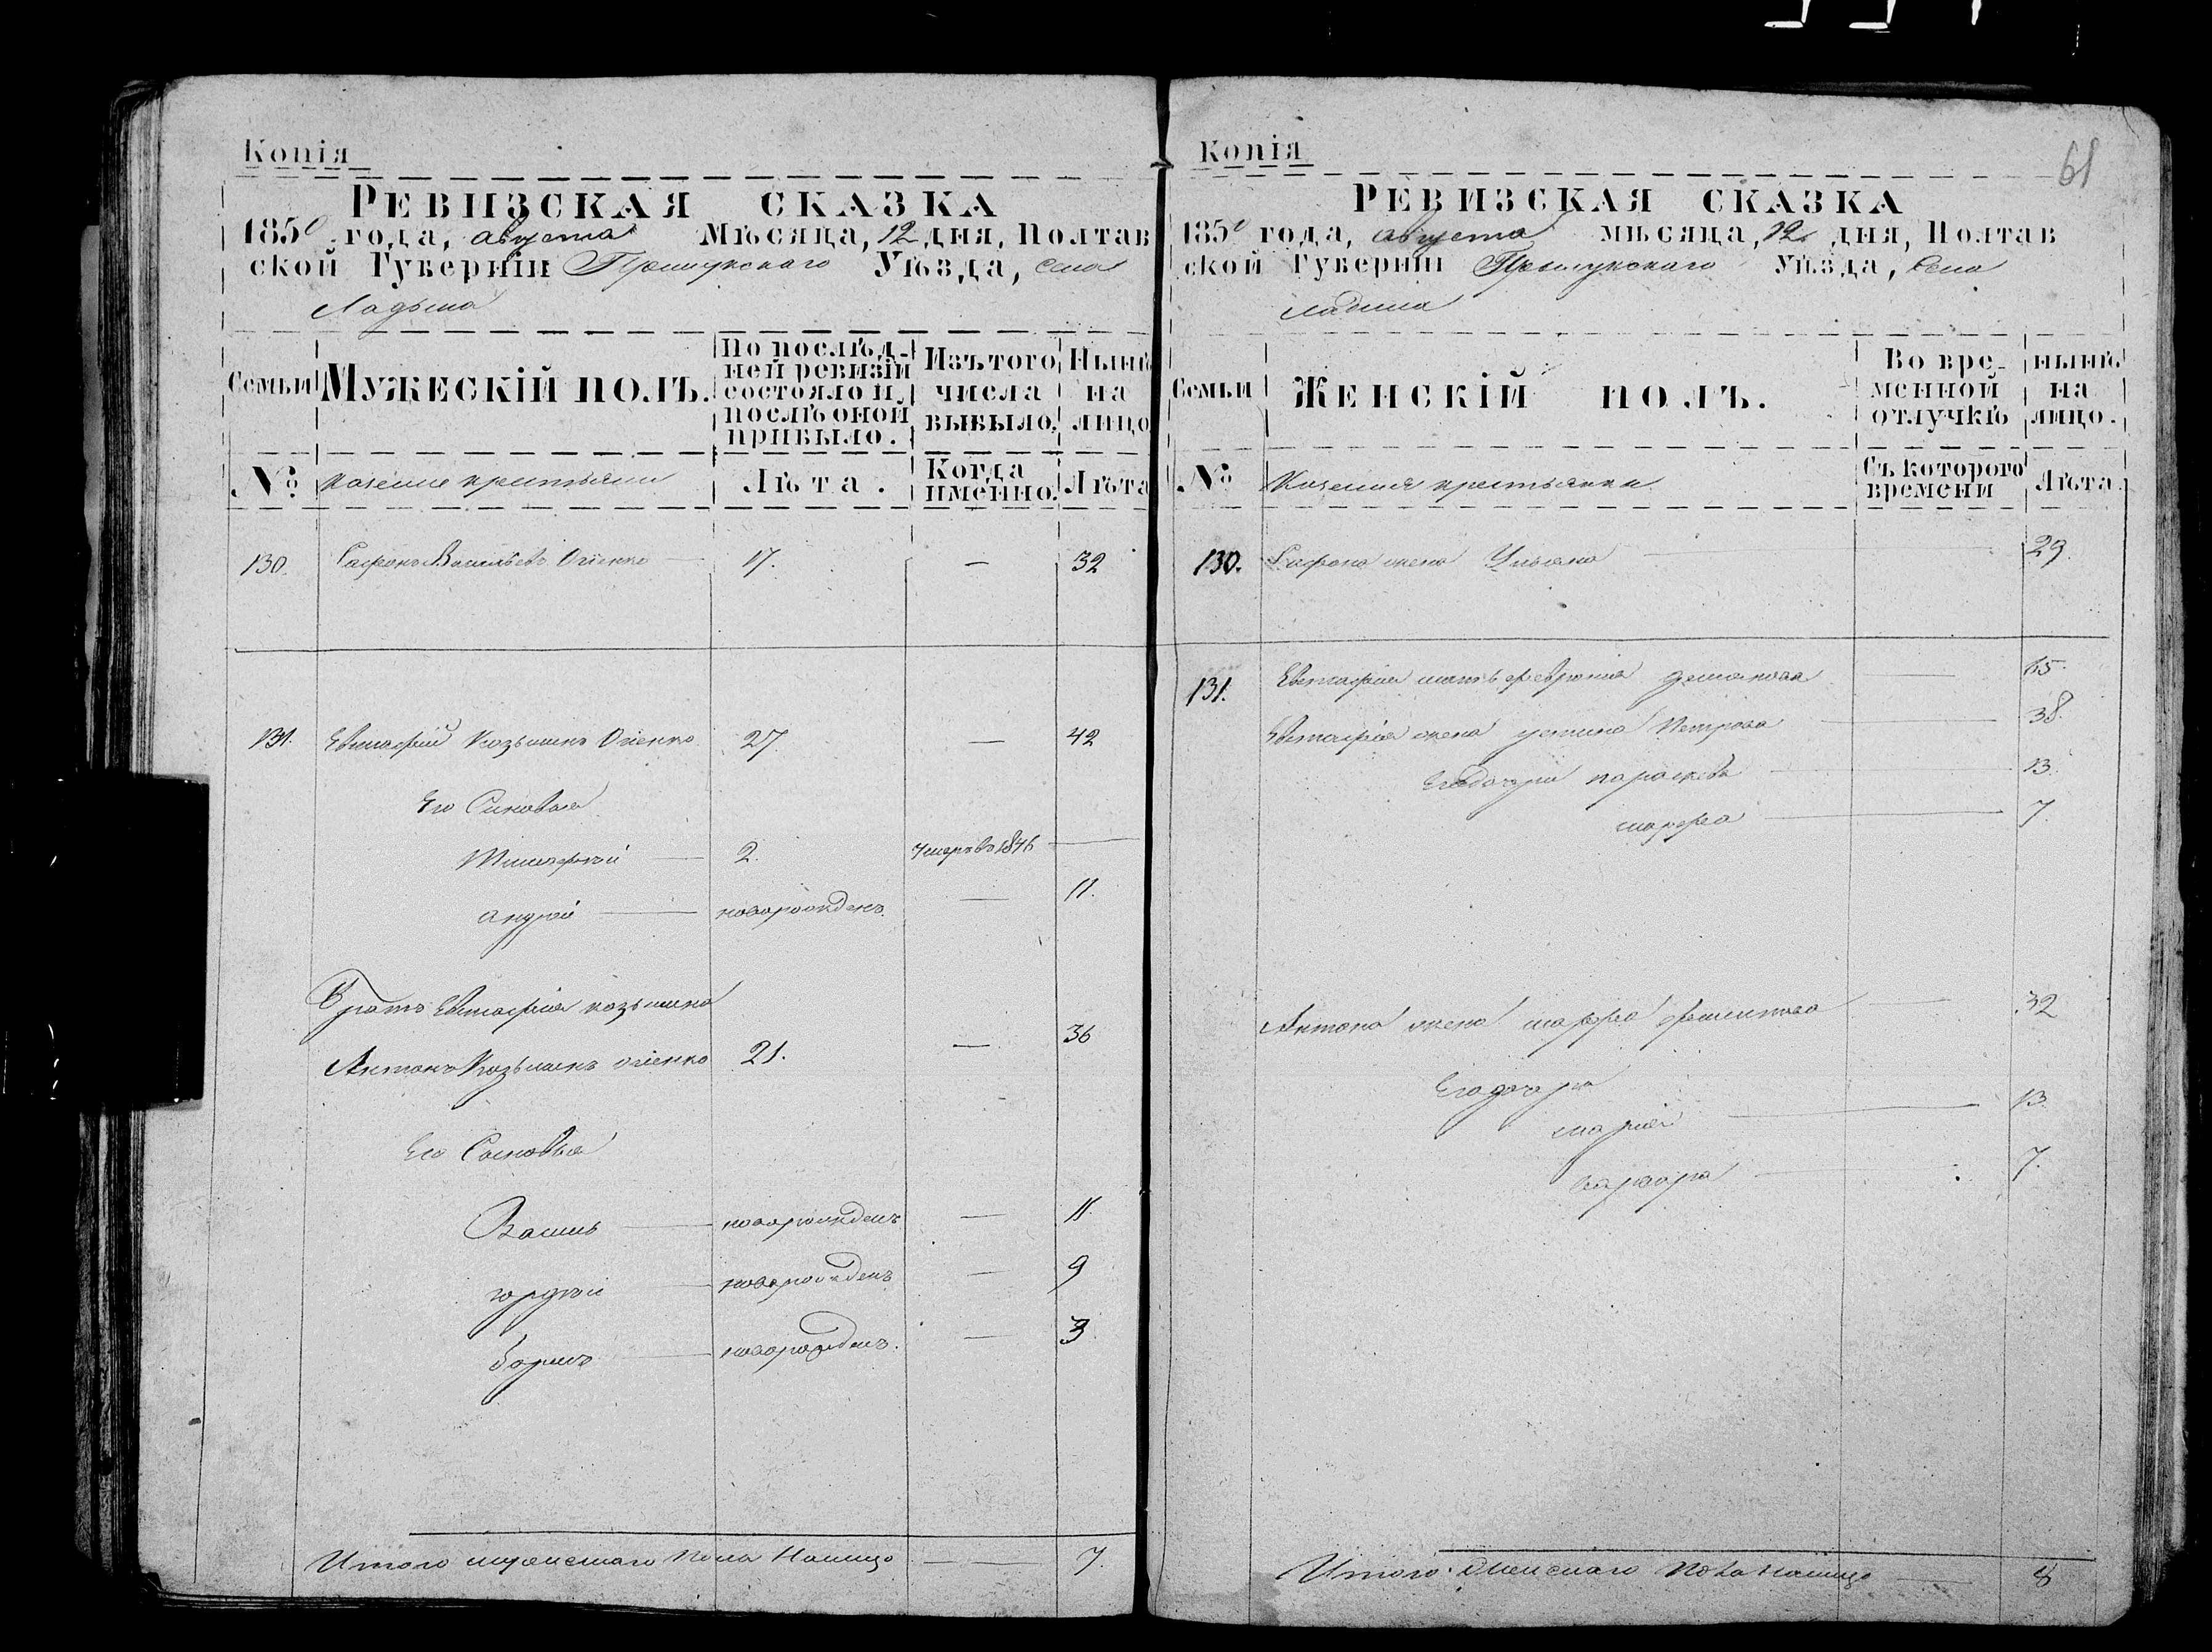 Копія
РЕВИЗСКАЯ СКАЗКА
1850 года, августа Мѣсяца, 12 дня, Полтав
ской Губерніи Прилукского Уѣзда, села
Ладына
Семьи
МУЖЕСКІЙ ПОЛЪ.
По послѣд-
ней ревизіи
состояло и
послѣ оной
прибыло.
Изъ того
числа
выбыло.
Нынѣ
на
лицо
№
казенные крестьяни
Лѣта.
Когда
именно.
Лѣта
130. Сафонъ Васильевъ Огіенко 17. — 32
131. Евстафий Козьминъ Огіенко 27 — 42
Его Синовья
Тимофей 2. умеръ въ 1846
андрей новорожденъ. — 11.
Братъ Евстафія козьмина
Антонъ Козьминъ огіенко 21. — 36
Его Сыновья
Василь новорожденъ — 11.
гордѣй новорожденъ — 9
борисъ новорожденъ. — 3
Итого мужескаго пола Налицо — 7.
Копія
61
РЕВИЗСКАЯ СКАЗКА
1850 года, августа мѣсяца, 12 дня, Полтав
ской Губерніи Прилукскаго Уѣзда, Села
ладина
Семьи
ЖЕНСКІЙ ПОЛЪ.
Во вре-
менной
отлучкѣ
нынѣ
на
лицо.
№
Казенныя крестьянки
Съ котораго
времени
Лѣта.
130. Сафона жена Ульяна 29.
131. Евстафія мать феврония демянова 65.
Евстафія жена устина Петрова 38.
Его дочери параскева 13.
марфа 7.
Антона жена марфа 32
Его дочери
марія 13.
варвара 7.
Итого женскаго пола налицо — 8